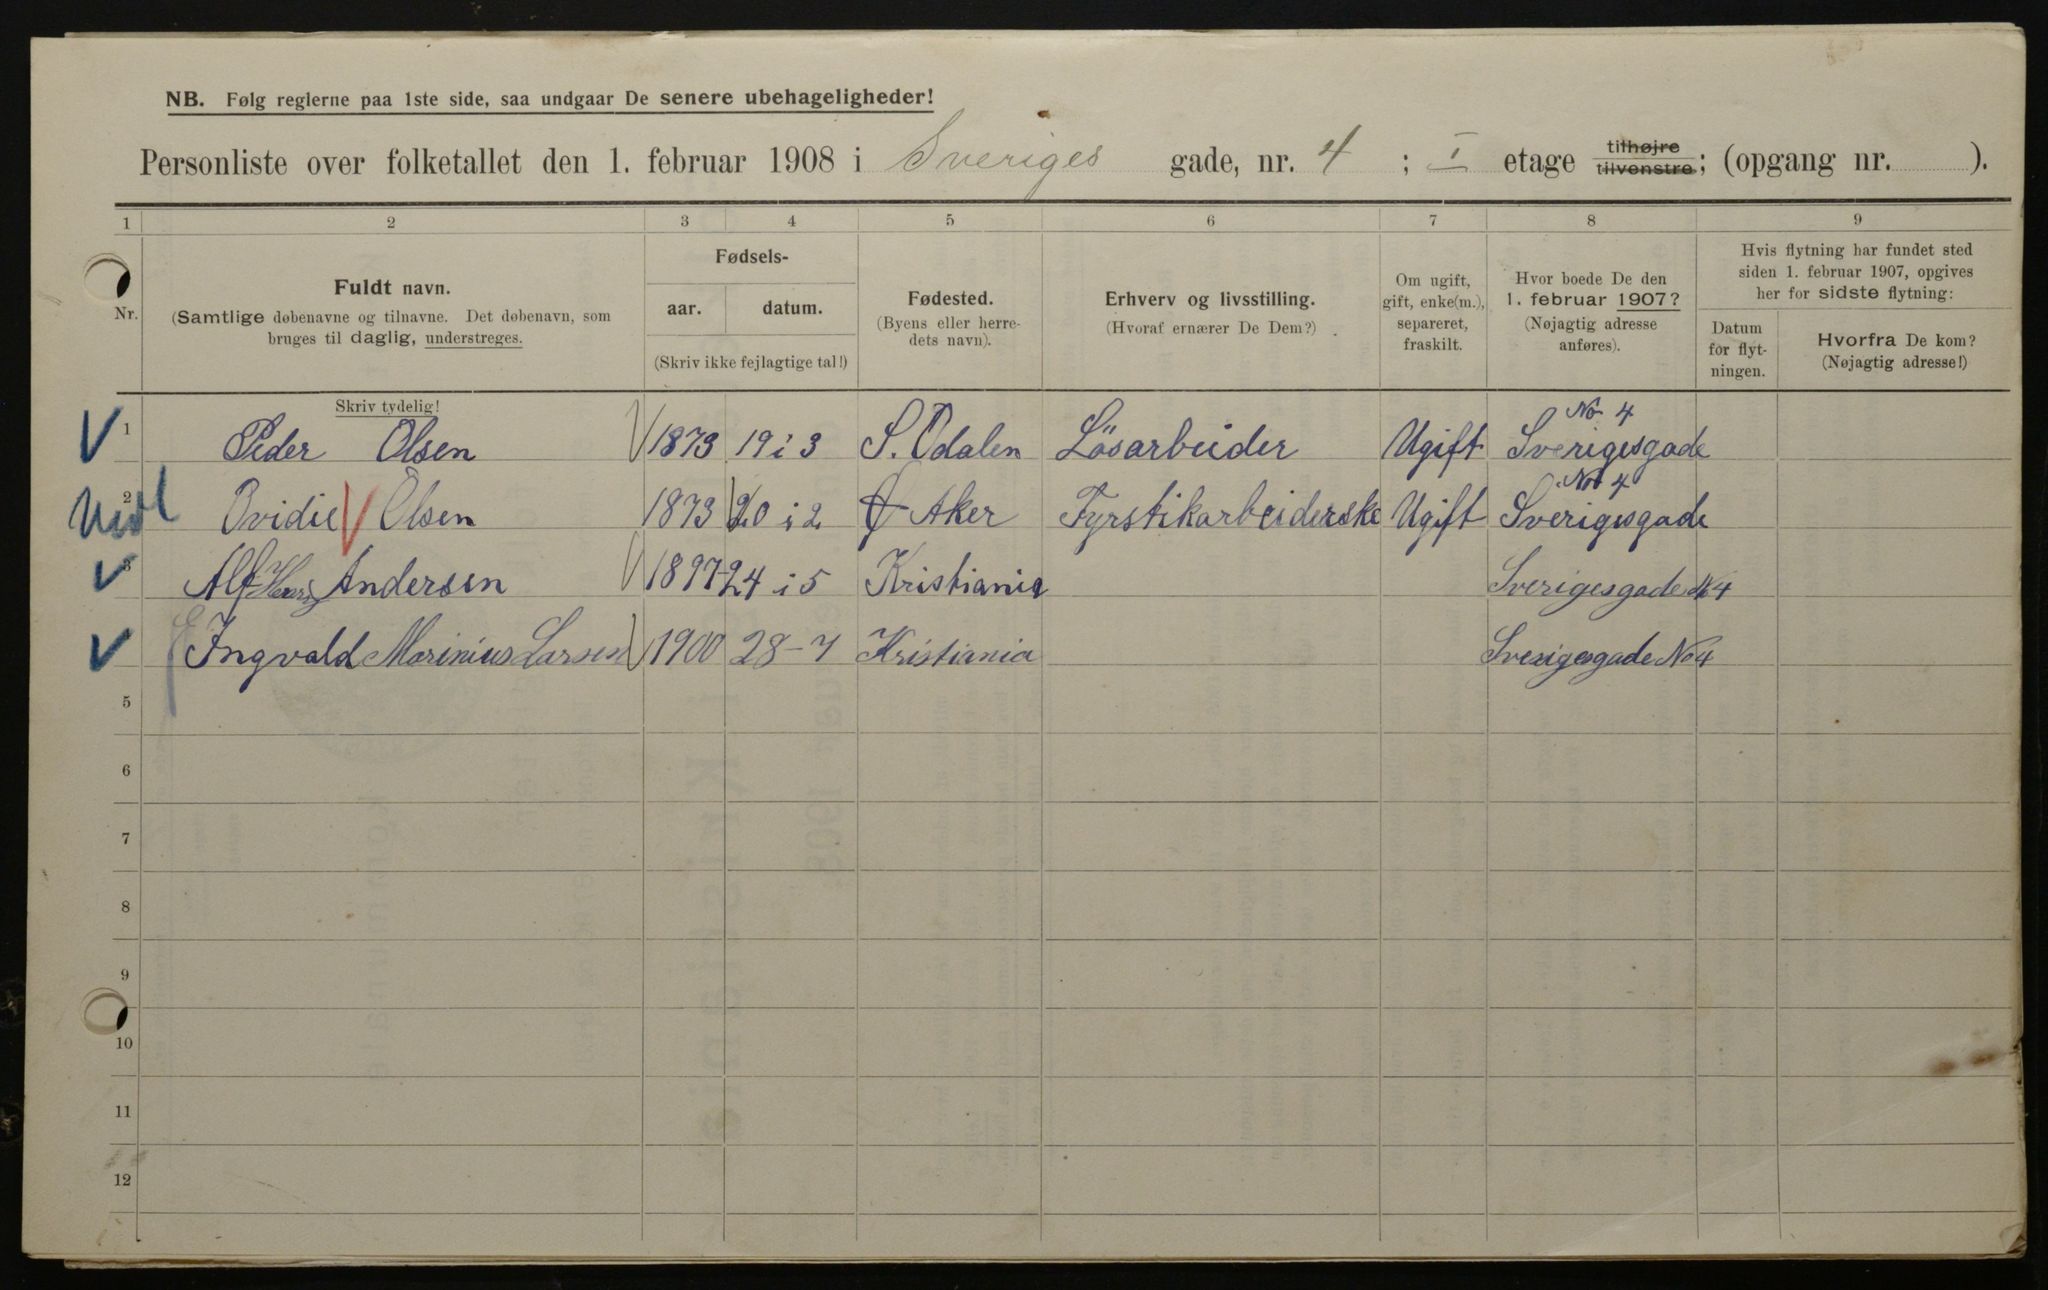 NB. Følg reglerne paa 1ste side, saa undgaar De senere ubehageligheder!
Personliste over folketallet den 1. februar 1908 i Sveriges gade, nr. 4 ; I etage tilhøjre tilvenstre; (opgang nr. ).
1 2 3 4 5 6 7 8 9
Nr.
Fuldt navn.
(Samtlige døbenavne og tilnavne. Det døbenavn, som
bruges til daglig, understreges.
Fødsels-
aar. datum.
(Skriv ikke fejlagtige tal!)
Fødested.
(Byens eller herre-
dets navn).
Erhverv og livsstilling.
(Hvoraf ernærer De Dem?)
Om ugift,
gift, enke(m.),
separeret,
fraskilt.
Hvor boede De den
1. februar 1907?
(Nøjagtig adresse
anføres).
Hvis flytning har fundet sted
siden 1. februar 1907, opgives
her for sidste flytning:
Datum
for flyt-
ningen.
Hvorfra De kom?
(Nøjagtig adresse!)
Skriv tydelig!
1 Peder Olsen 1873 19 i 3 S. Odalen Løsarbeider Ugift Sverigesgade No 4
2 Ovidie Olsen 1873 20 i 2 Aker Fyrstikarbeiderske Ugift Sverigesgade No 4
3 Alf Henry Andersen 1897 24 i 5 Kristiania Sverigesgade No 4
Ingvald Marinius Larsen 1900 28-7 Kristiania Sverigesgade No 4
5
6
7
8
9
10
11
12